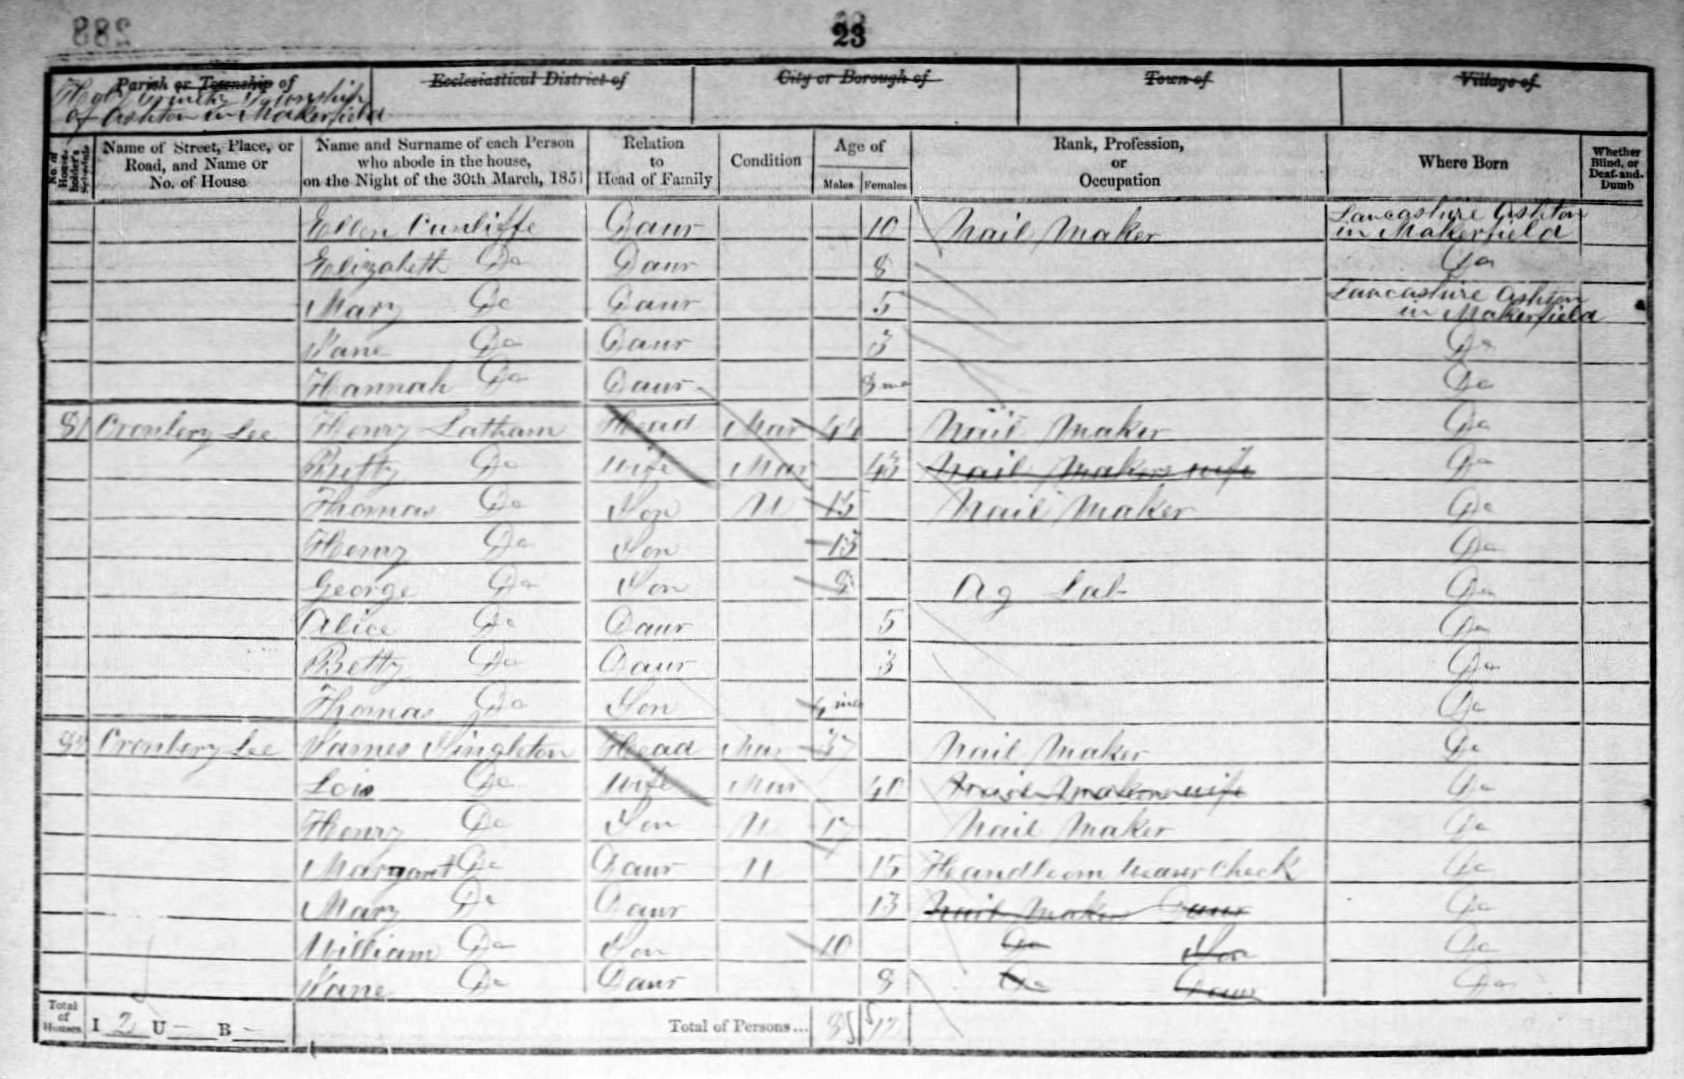 288
23
Parish or Township of
Ecclesiastical District of
City or Borough of
Town of
Village of
Holy Trinity Township
of Ashton in Makerfield
No. of House-holder's Schedule
Name of Street, Place, or Road, and Name or No. of House
Name and Surname of each Person who abode in the house, on the Night of the 30th March, 1851
Relation to Head of Family
Condition
Age of
Males
Females
Rank, Profession, or Occupation
Where Born
Whether Blind, or Deaf-and-Dumb
Ellen Cunliffe Daur 10 Nail Maker Lancashire Ashton in Makerfield
Elizabeth Do Daur 8 Do
Mary Do Daur 5 Lancashire Ashton in Makerfield
Jane Do Daur 3 Do
Hannah Do Daur 8 mo Do
81 Cronbery Lee Henry Latham Head Mar 44 Nail Maker Do
Betty Do Wife Mar 43 Nail Makers wife Do
Thomas Do Son U 15 Nail Maker Do
Henry Do Son 13 Do
George Do Son 8 Ag Lab Do
Alice Do Daur 5 Do
Betty Do Daur 3 Do
Thomas Do Son mo Do
Cronbery Lee James Singleton Head Mar 47 Nail Maker Do
Lois Do Wife Mar 40 Nail Makers wife Do
Henry Do Son U 17 Nail Maker Do
Margaret Do Daur U 15 Handloom Weaver Check Do
Mary Do Daur 13 Nail Makers Daur Do
William Do Son 10 Do Son Do
Jane Do Daur 8 Do Daur Do
Total of Houses I 2 U - B -
Total of Persons... 8 12